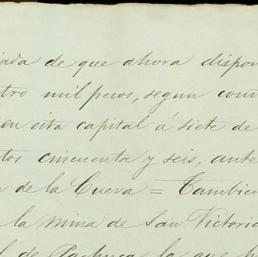 iada de que ahora dispon
tro mil pesos, segun conv
en esta capital á siete de
tos cincuenta y seis, ante
de la Cueva = Tambien
la mina de San Victoria
de Pachuca la que